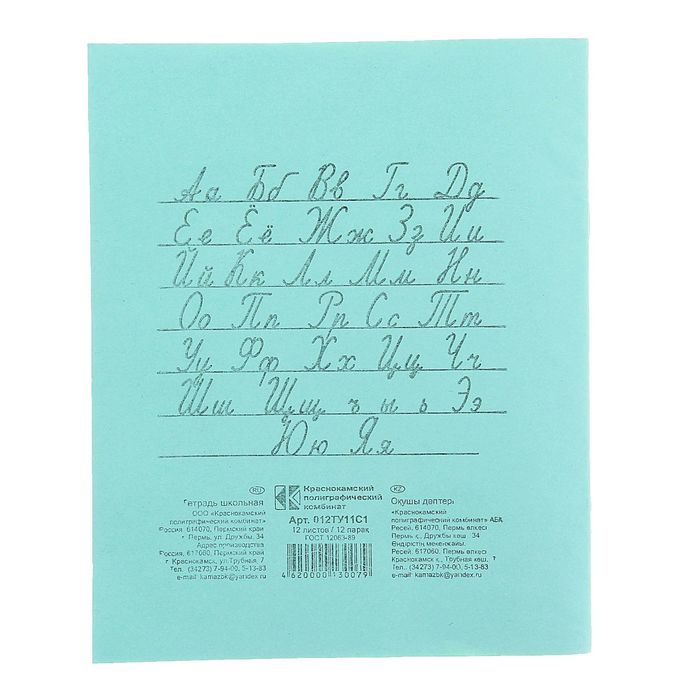 Аа Бб Вв Гг Дд
Ее Ёё Жж Зз Ии
Йй Кк Лл Мм Нн
Оо Пп Рр Сс Тт
Уу Фф Хх Цц Чч
Шш Щщ ъ ы ь Ээ
Юю Яя
RU
Тетрадь школьная
ООО «Краснокамский
полиграфический комбинат»
Россия, 614070, Пермский край
г. Пермь, ул. Дружбы, 34
Адрес производства:
Россия, 617060, Пермский край
г. Краснокамск, ул. Трубная, 7
Тел.: (34273) 7-94-00, 5-13-83
e-mail: kamazbk@yandex.ru
Краснокамский
полиграфический
комбинат
Арт. 012ТУ11С1
12 листов / 12 парақ
ГОСТ 12063-89
4620000130079
KZ
Оқушы дәптері
«Краснокамский
полиграфический комбинат» АБҚ
Ресей, 614070, Пермь өлкесі
Пермь қ., Дружбы көш. 34
Өндірістің мекенжайы:
Ресей, 617060, Пермь өлкесі
Краснокамск қ., Трубная көш. 7
Тел.: (34273) 7-94-00, 5-13-83
e-mail: kamazbk@yandex.ru